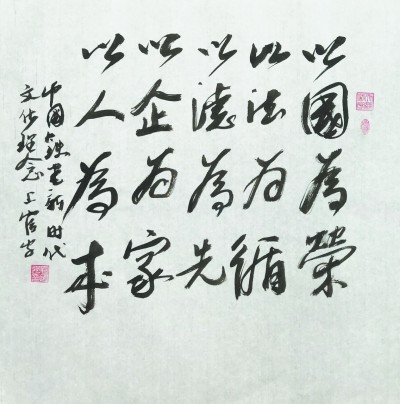 以國為榮
以法为循
以德為先
以企为家
以人為本
中国新时代
文化理念 上官